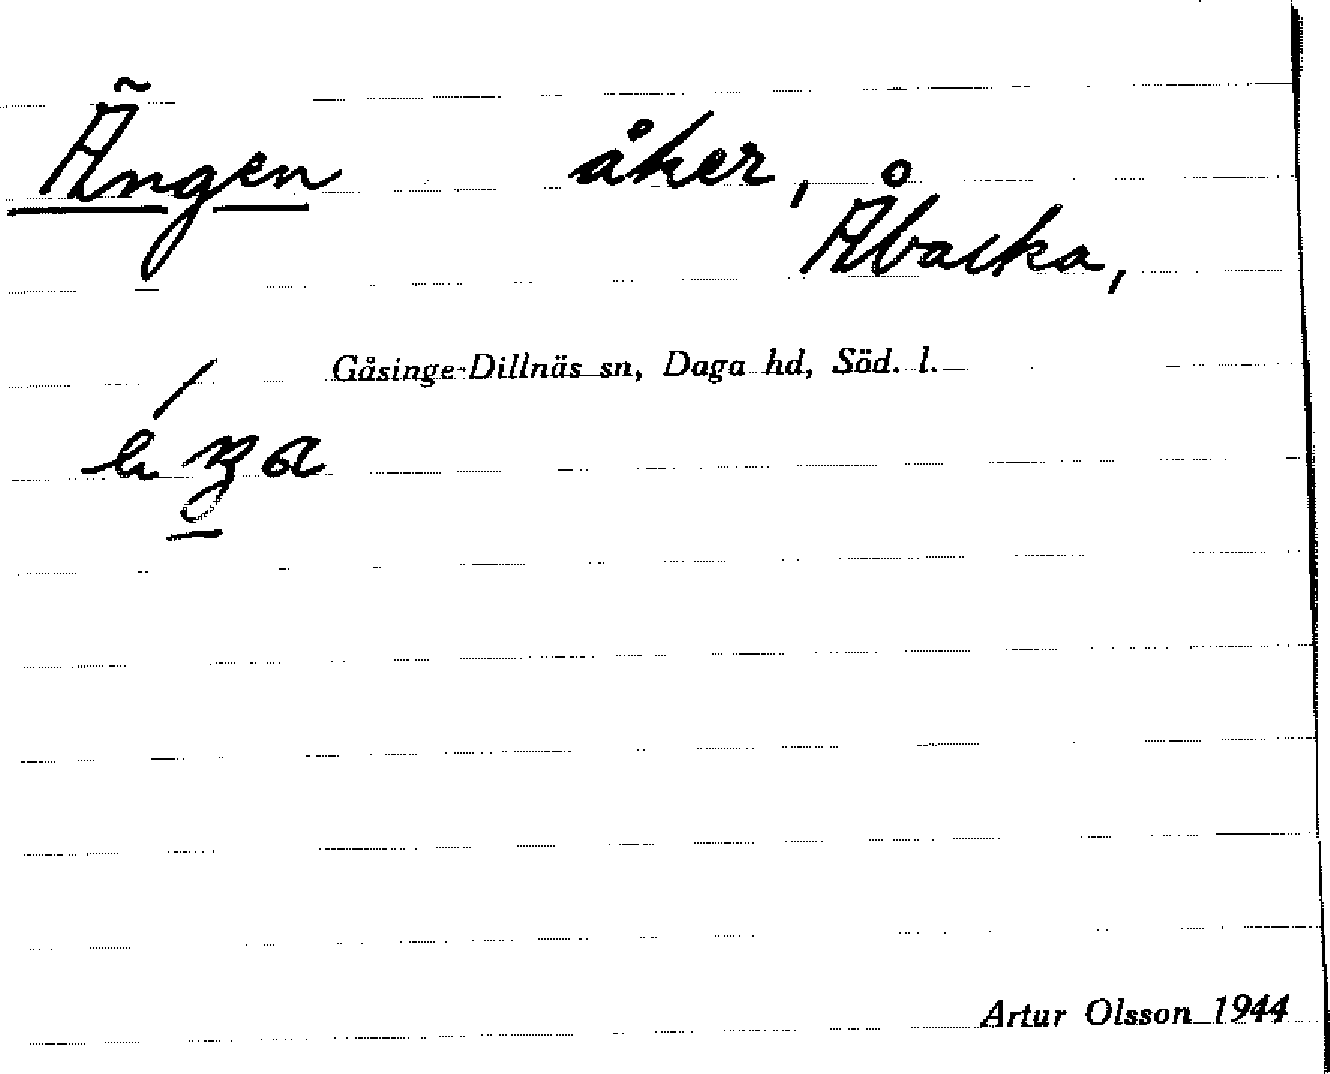 Ängen åker,
Åbacka,
Gåsinge-Dillnäs sn, Daga hd, Söd. l.
Artur Olsson 1944